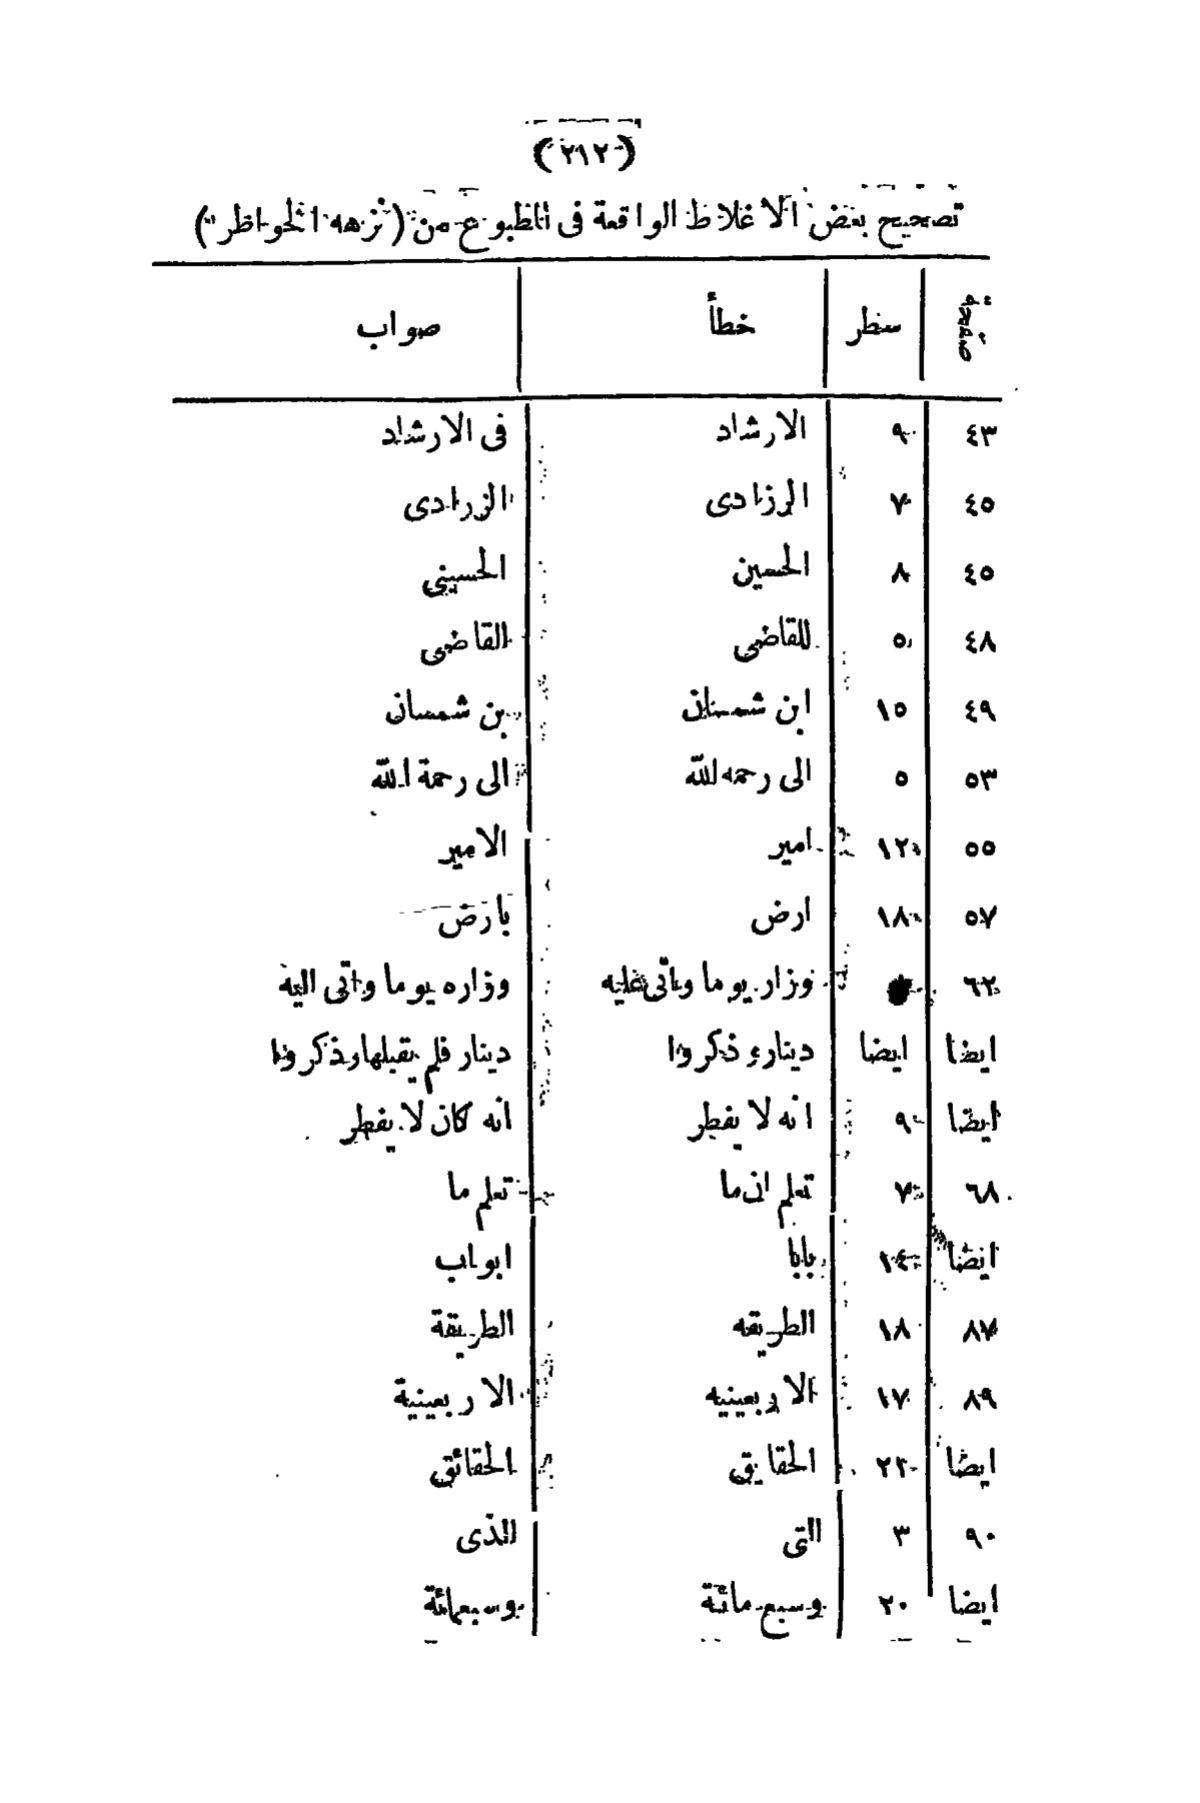 (٢١٢)
تصحيح بعض الاغلاط الواقعة فى المطبوع من (نزهه الخواطر)
صفحة سطر خطأ صواب
٤٣ ٩ الارشاد فى الارشاد
٤٥ ٧ الرزادى الزرادى
٤٥ ٨ الحسين الحسينى
٤٨ ٥ للقاضى القاضى
٤٩ ١٥ ابن شمسان بن شمسان
٥٣ ٥ الى رحمه لله الى رحمة الله
٥٥ ١٢ امير الامير
٥٧ ١٨ ارض بارض
٦٢ وزار يوما وباتى عليه وزاره يوما واتى اليه
ايضا ايضا دينارء ذكروا دينار فلم يقبلها وذكروا
ايضا ٩ انه لا يفطر انه كان لا يفطر
٦٨ ٧ تعلم ان ما تعلم ما
ايضا ١٤ بابا ابواب
٨٧ ١٨ الطريقه الطريقة
٨٩ ١٧ الاربعينيه الاربعينية
ايضا ٢٢ الحقايق الحقائق
٩٠ ٣ التى الذى
ايضا ٢٠ وسبع مائة وسبعمائة